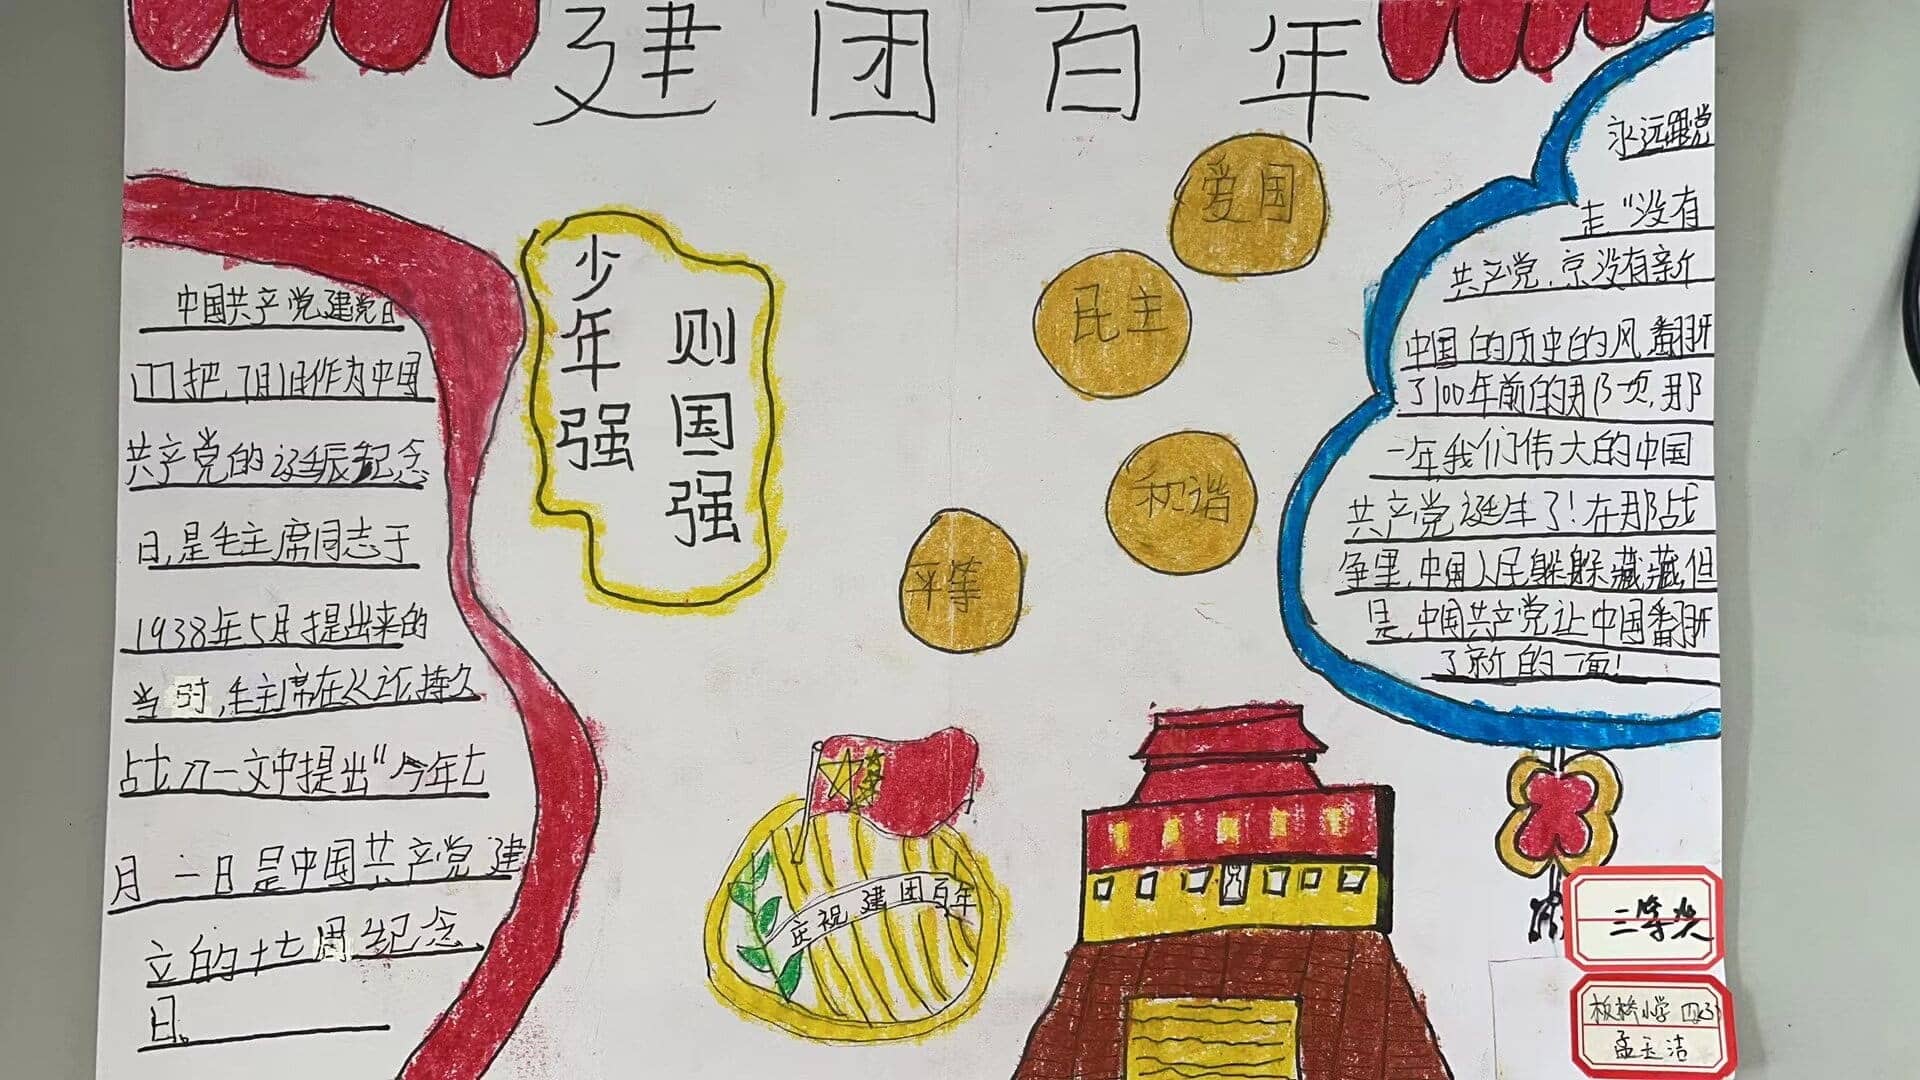 建团百年
中国共产党建党日
门把,7月1日作为中国
共产党的诞辰纪念
日,是毛主席同志于
1938年5月提出来的
当时,毛主席在《论持久
战》一文中提出"今年七
月一日是中国共产党建
立的十七周纪念
日。
少年强
则国强
爱国
民主
和谐
平等
永远跟党
走"没有
共产党,京没有新
中国的历史的风翻
了100年前的那一页,那
一年,我们伟大的中国
共产党诞生了!在那战
争里,中国人民躲躲藏藏但
是,中国共产党让中国翻
了新的一面!
庆祝建团百年
三等奖
板桥小学
孟玉洁